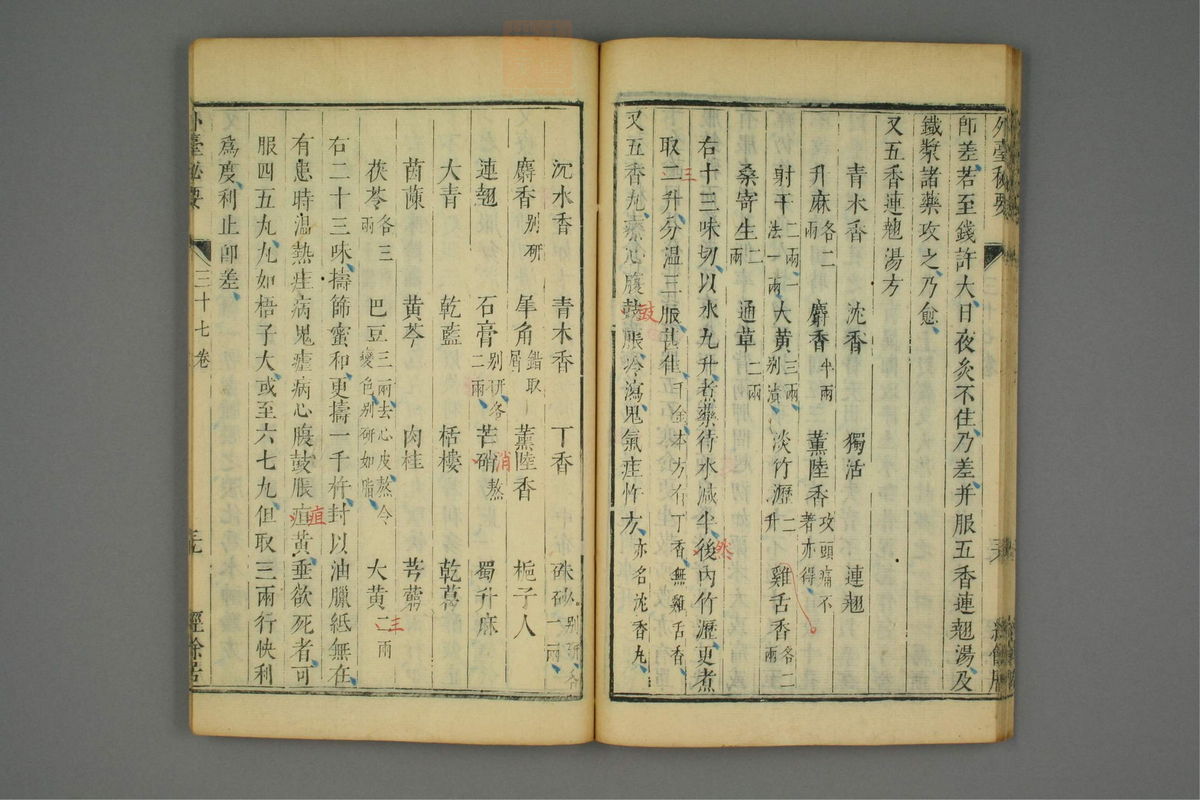 外臺秘要
即差若至錢許大日夜灸不住乃差并服五香連翹湯及
鐵漿諸藥攻之乃愈
又五香連翹湯方
青木香 沈香 獨活 連翹
升麻各二兩 麝香半兩 薰陸香攻頭痛不著亦得
射干二兩一法一兩 大黃三兩別漬 淡竹瀝二升 雞舌香各二兩
桑寄生二兩 通草二兩
右十三味切以水九升煮藥待水減半後內竹瀝更煮
取二升分溫三服甚佳 丁香無雞舌香
三
又五香丸療心腹鼓脹冷瀉鬼氣疰忤方亦名沈香丸
沉水香 青木香 丁香 硃砂別研各一兩
麝香別研 犀角錯取屑 薰陸香 梔子人
連翹 石膏別研各二兩 芒硝熬 蜀升麻
消
大青 乾藍 栝樓 乾葛
茵蔯 黃芩 肉桂 芎藭
茯苓各三兩 巴豆三兩去心皮熬令變色別研如脂 大黃二兩
右二十三味擣篩蜜和更擣一千杵封以油臘紙無在
有患時溫熱疰病鬼瘧病心腹鼓脹疸黃垂欲死者可
疸
服四五丸丸如梧子大或至六七丸但取三兩行快利
爲度利止即差
外臺祕要 三十七卷 經餘居